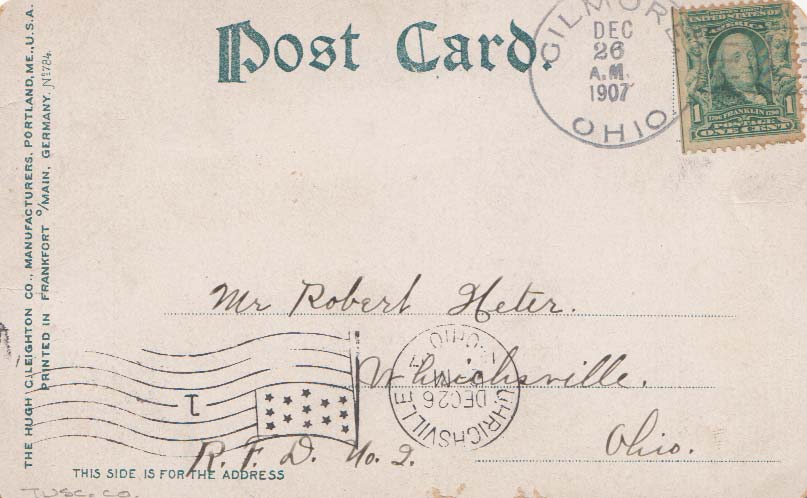 Post Card.
GILMORE
DEC
26
A.M.
1907
OHIO
UNITED STATES OF
1 1
FRANKLIN
POSTAGE
ONE CENT
THE HUGH C. LEIGHTON CO., MANUFACTURERS, PORTLAND, ME., U.S.A.
PRINTED IN FRANKFORT o/MAIN, GERMANY. No 784.
Mr Robert Heter.
Uhrichsville.
Ohio.
R. F. D. No. 2.
1
UHRICHSVILLE
OHIO
DEC 26
THIS SIDE IS FOR THE ADDRESS
TUSC. CO.